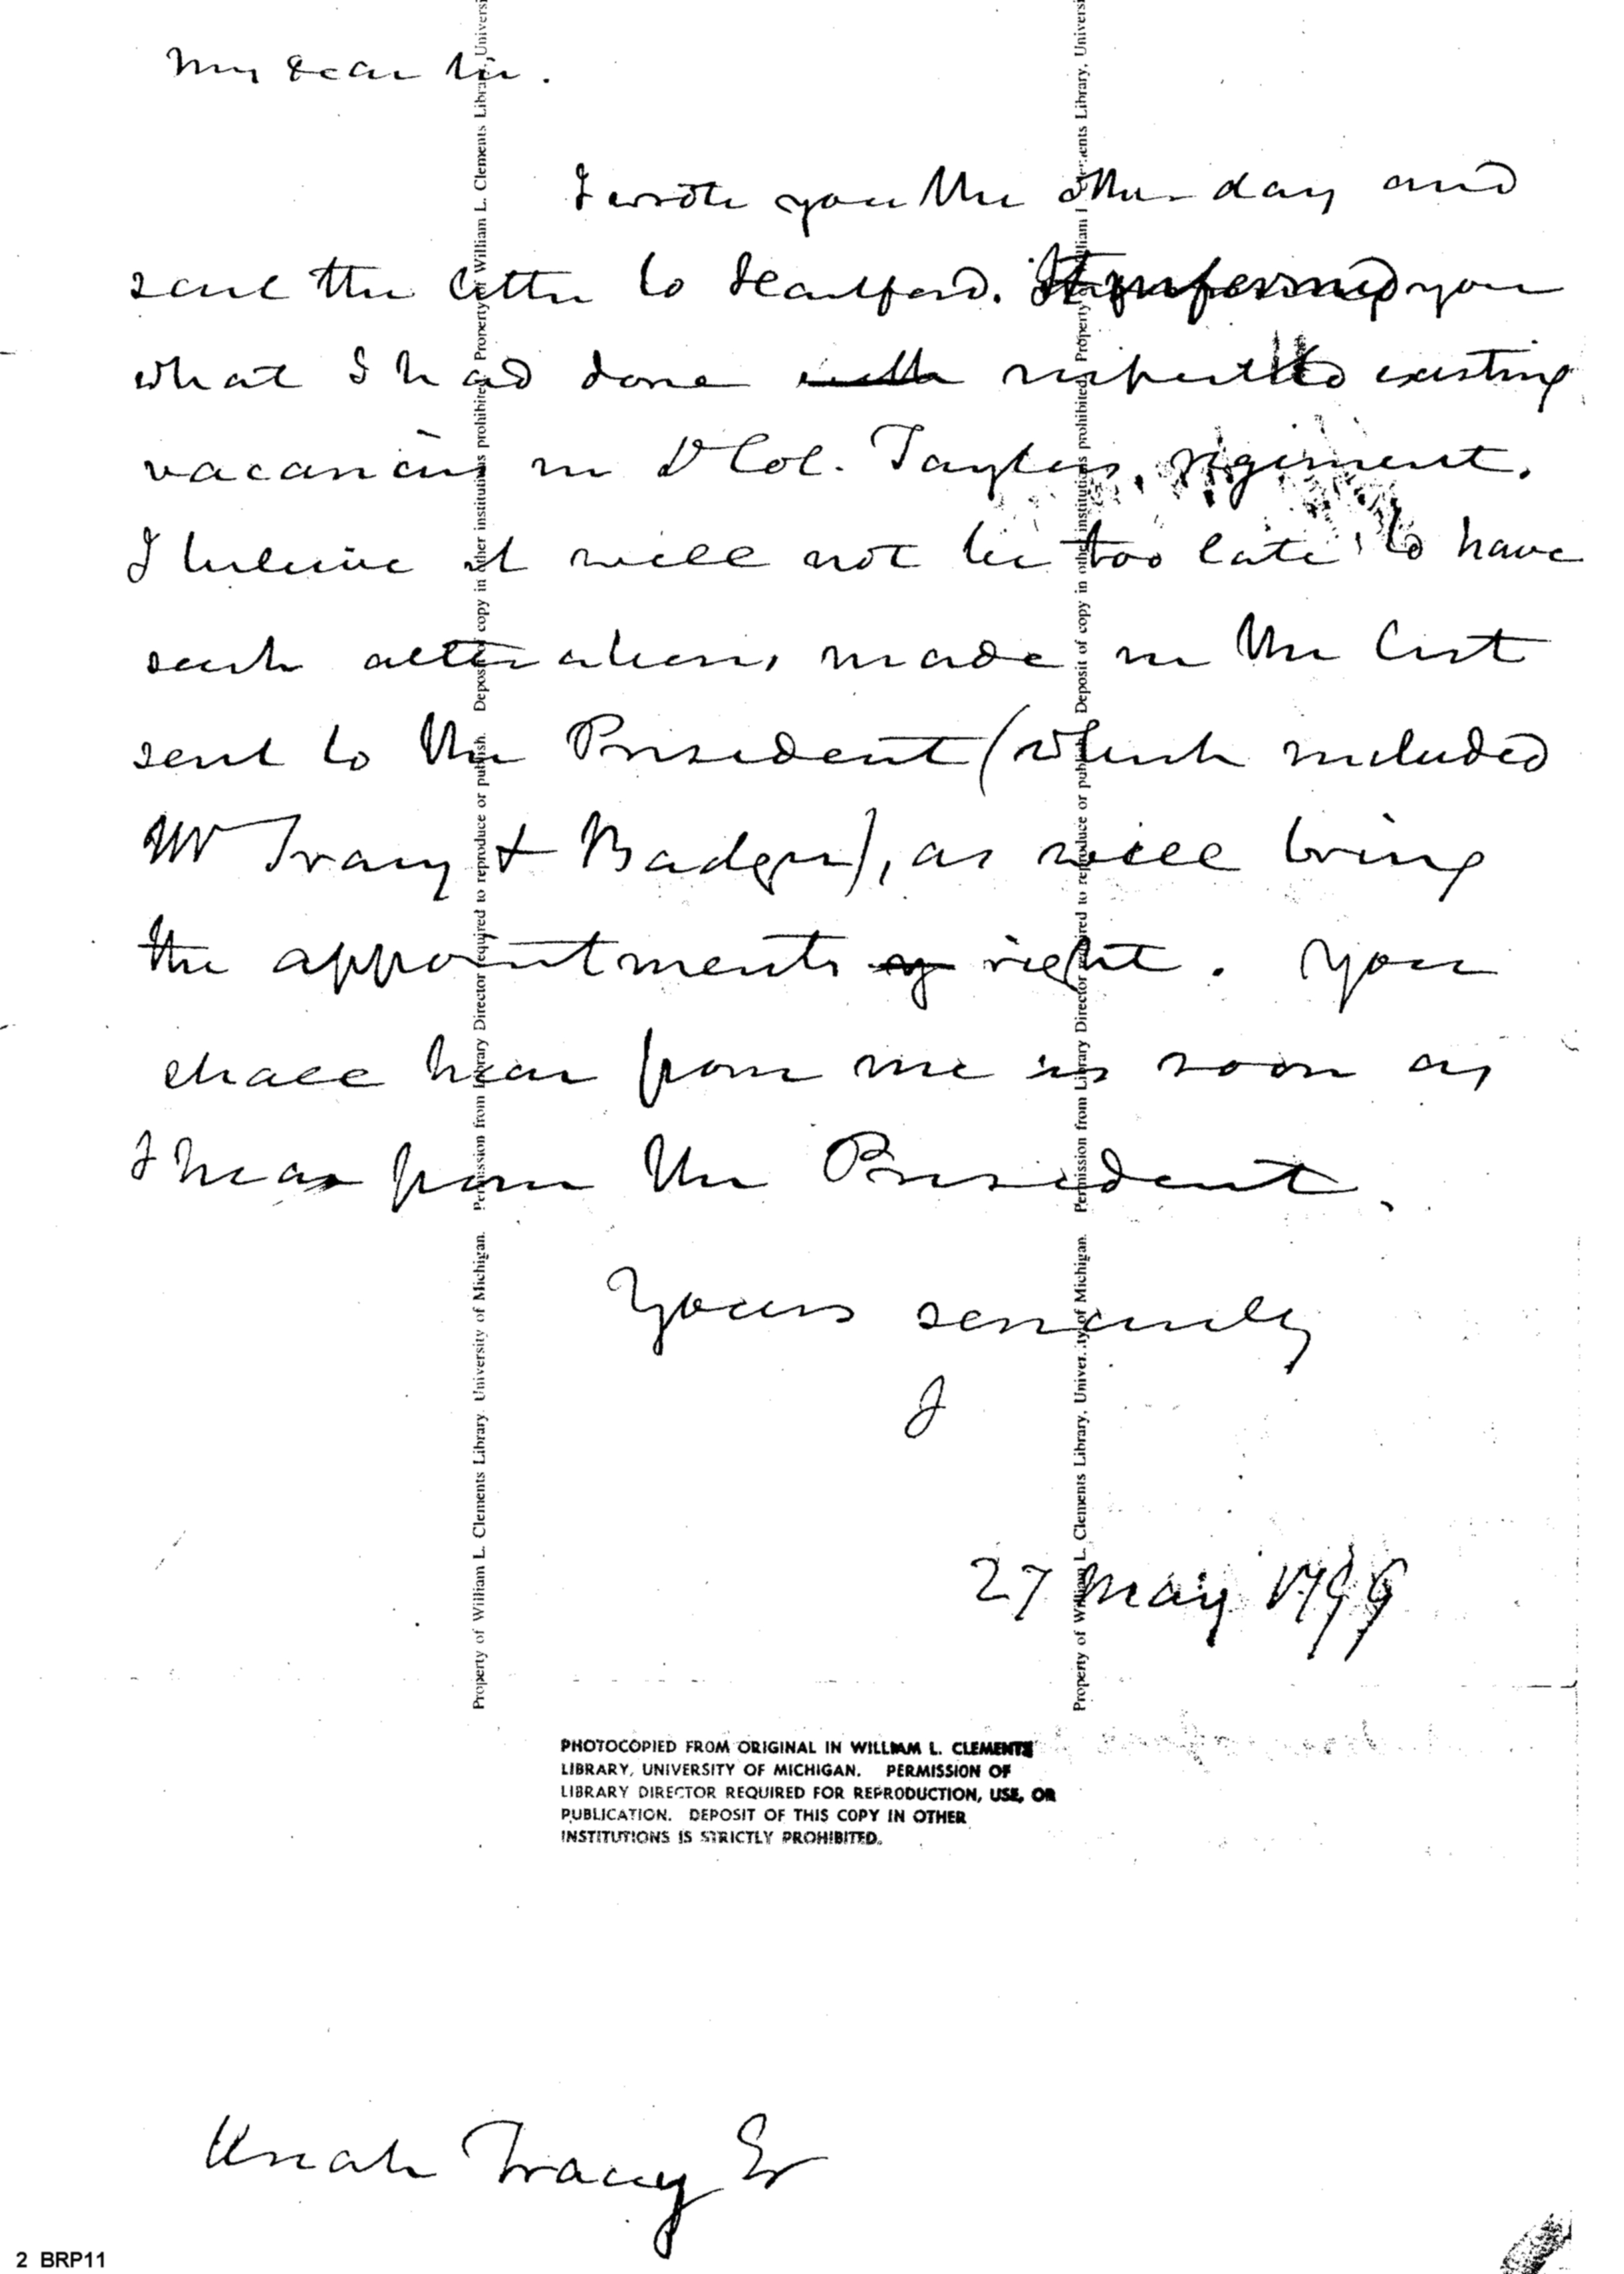 My dear Sir.
I wrote you the other day and
sent the letter to Hartford. It informed you
what I had done with respect to existing
vacancies in Lt Col. Taylors regiment.
I believe it will not be too late to have
such alterations made in the list
sent to the President (which included
Mr Tracy & Badger), as will bring
the appointments right. You
shall hear from me as soon as
I hear from the President.
Yours sincerely
J
27 May 1799
PHOTOCOPIED FROM ORIGINAL IN WILLIAM L. CLEMENTS
LIBRARY, UNIVERSITY OF MICHIGAN. PERMISSION OF
LIBRARY DIRECTOR REQUIRED FOR REPRODUCTION, USE, OR
PUBLICATION. DEPOSIT OF THIS COPY IN OTHER
INSTITUTIONS IS STRICTLY PROHIBITED.
Uriah Tracy Er
2 BRP11
Property of William L. Clements Library, University of Michigan. Permission from Library Director required to reproduce or publish. Deposit of copy in other institutions prohibited. Property of William L. Clements Library, Universi
Property of William L. Clements Library, University of Michigan. Permission from Library Director required to reproduce or publish. Deposit of copy in other institutions prohibited. Property William L. Clements Library, Universi